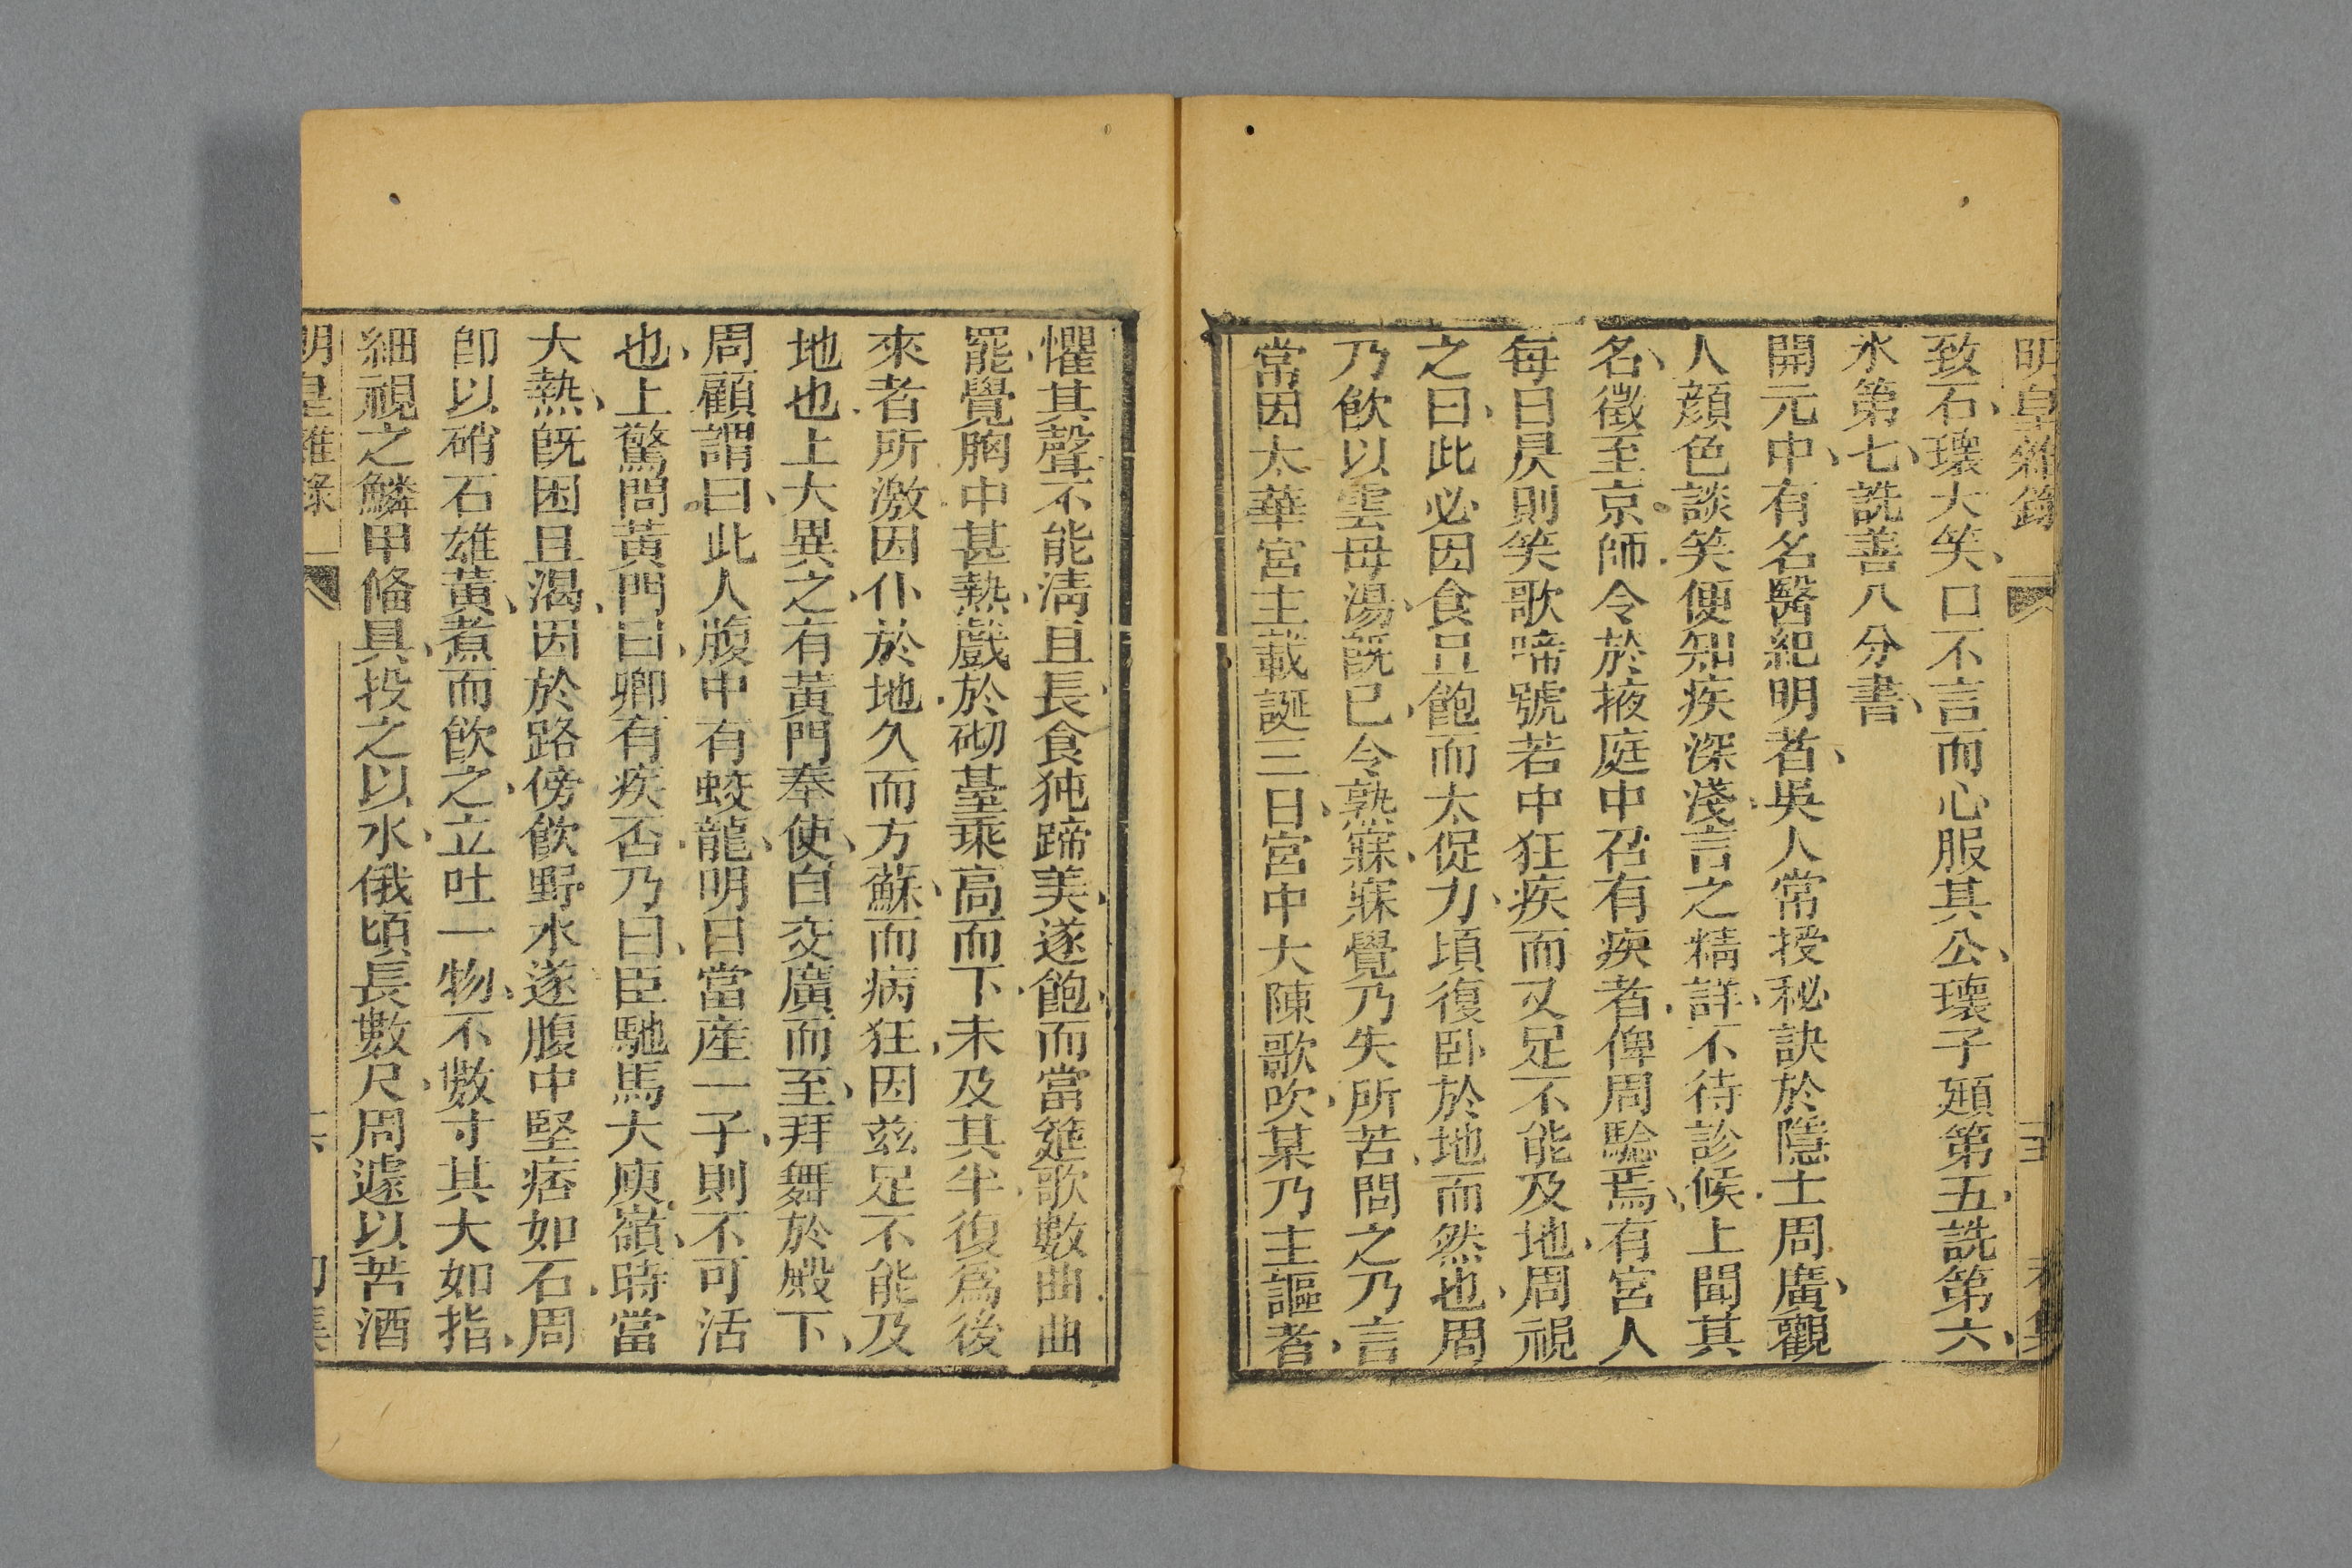 明皇雜錄
致石瓌大笑口不言而心服其公瓌子頲第五詵第六
氷第七詵善八分書
開元中有名醫紀明者吳人常授秘訣於隱士周廣觀
人顔色談笑便知疾深淺言之精詳不待診候上聞其
名徵至京師令於掖庭中召有疾者俾周驗焉有宮人
每日昃則笑歌啼號若中狂疾而又足不能及地周視
之曰此必因食且飽而太促力頃復卧於地而然也周
乃飲以雲母湯旣已令熟寐寐覺乃失所苦問之乃言
常因太華宮主載誕三日宮中大陳歌吹某乃主謳者
懼其聲不能淸且長食㹠蹄美遂飽而當筵歌數曲曲
罷覺胸中甚熱戲於砌䑓乘高而下未及其半復爲後
來者所激因仆於地久而方蘇而病狂因兹足不能及
地也上大異之有黃門奉使自交廣而至拜舞於殿下
周顧謂曰此人腹中有蛟龍明日當産一子則不可活
也上驚問黃門曰卿有疾否乃曰臣馳馬大庾嶺時當
大熱旣困且渴因於路傍飲野水遂腹中堅痞如石周
卽以硝石雄黃煮而飲之立吐一物不數寸其大如指
細視之鱗甲偹具投之以水俄頃長數尺周遽以苦酒
明皇雜錄